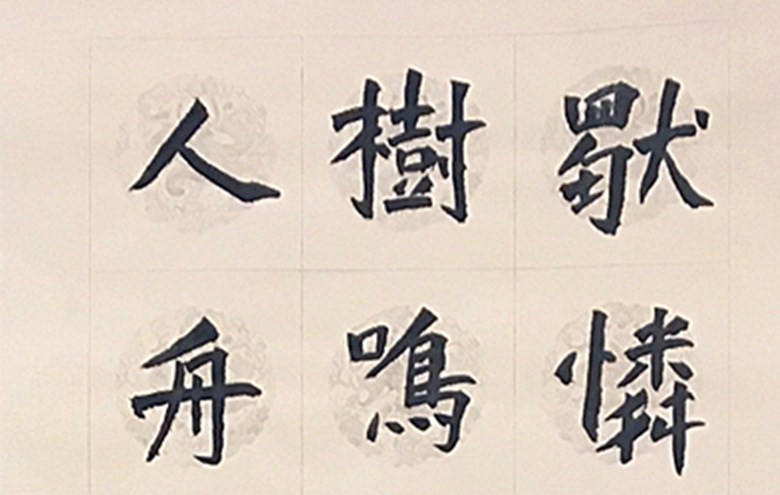 獨憐
樹鳴
人舟